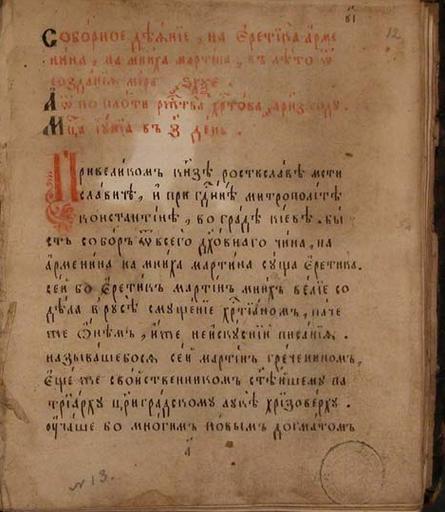 в҃і
12
Соборное дѣѧ́нїе, на є҆ретїка̀ а҆рме
ни́на, на мни́ха марти́на, въ лѣ́то ѿ
созда́нїѧ мі́ра
А ѿ по пло́ти рж҃тва̀ хр҃то́ва, году.
Мц҃а і҆у́нїа въ з҃ де́нь.
При вели́комъ кнѧ́зѣ ростисла́вѣ мсти
сла́вичѣ, и҆ при митрополі́тѣ
константі́нѣ, во гра́дѣ кі́евѣ. бы́
сть собо́ръ ѿ всегѡ̀ дх҃о́внагѡ чи́на, на
а҆рмени́на на мни́ха марти́на су́ща є҆ре́тика.
се́й бо є҆рети́къ марті́нъ мни́хъ ве́лїе со
дѣ́ла в рꙋсѣ̀ смꙋще́нїе хр҃тїа́номъ, па́че
же ѻ҆ не́мъ, и҆́же неи́скꙋснїи писа́нїѧ.
называ́шебосѧ се́й марті́нъ гре́чениномъ,
є҆ще́ же сво́йственникомъ ст҃ѣ́йшемꙋ па
трїа́рхꙋ цр҃игра́дскомꙋ лꙋкѣ̀ хрїзове́рхꙋ.
ᲂу҆ча́ше бо мно́гимъ но́вымъ до́гматомъ
а҃
№ 13.